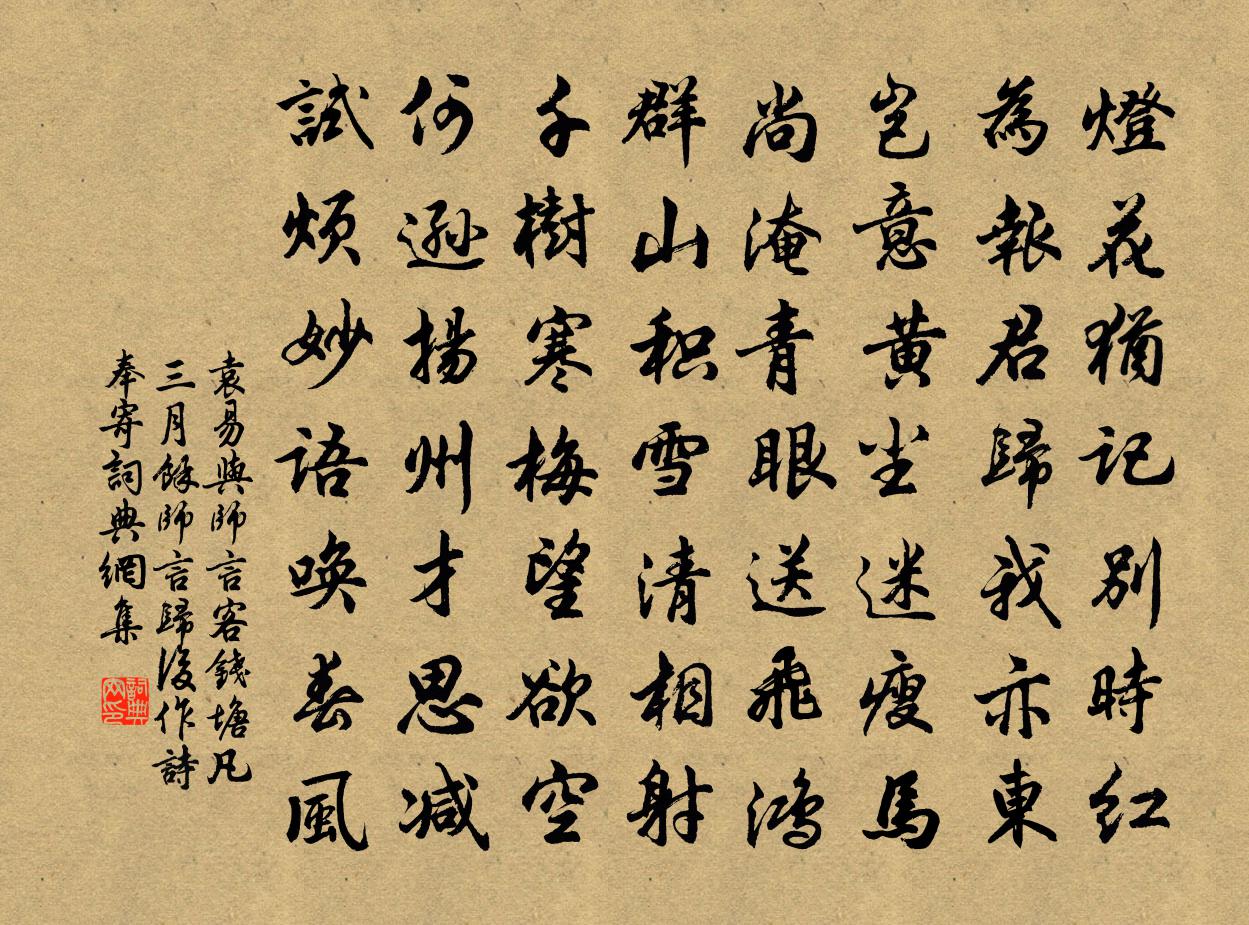 燈花猶記別時紅
為報君歸我亦東
豈意黃尘迷瘦馬
尚淹青眼送飛鴻
群山积雪清相射
千樹寒梅望欲空
何遜揚州才思减
試煩妙語唤春風
袁易與師言客錢塘凡
三月餘師言歸後作詩
奉寄詞典網集
詞典网印